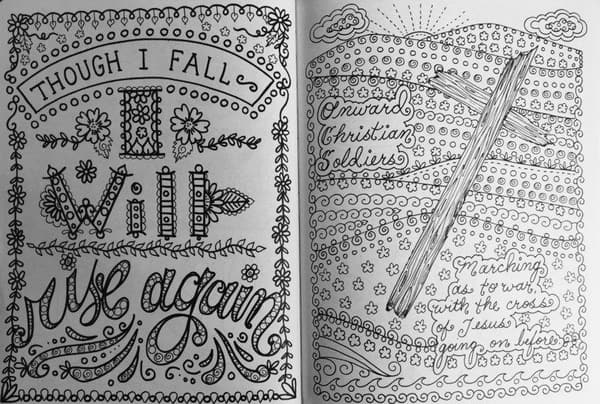 THOUGH I FALL
I
Will
rise again
Onward
Christian
Soldiers
Marching
as to war,
with the cross
of Jesus
going on before